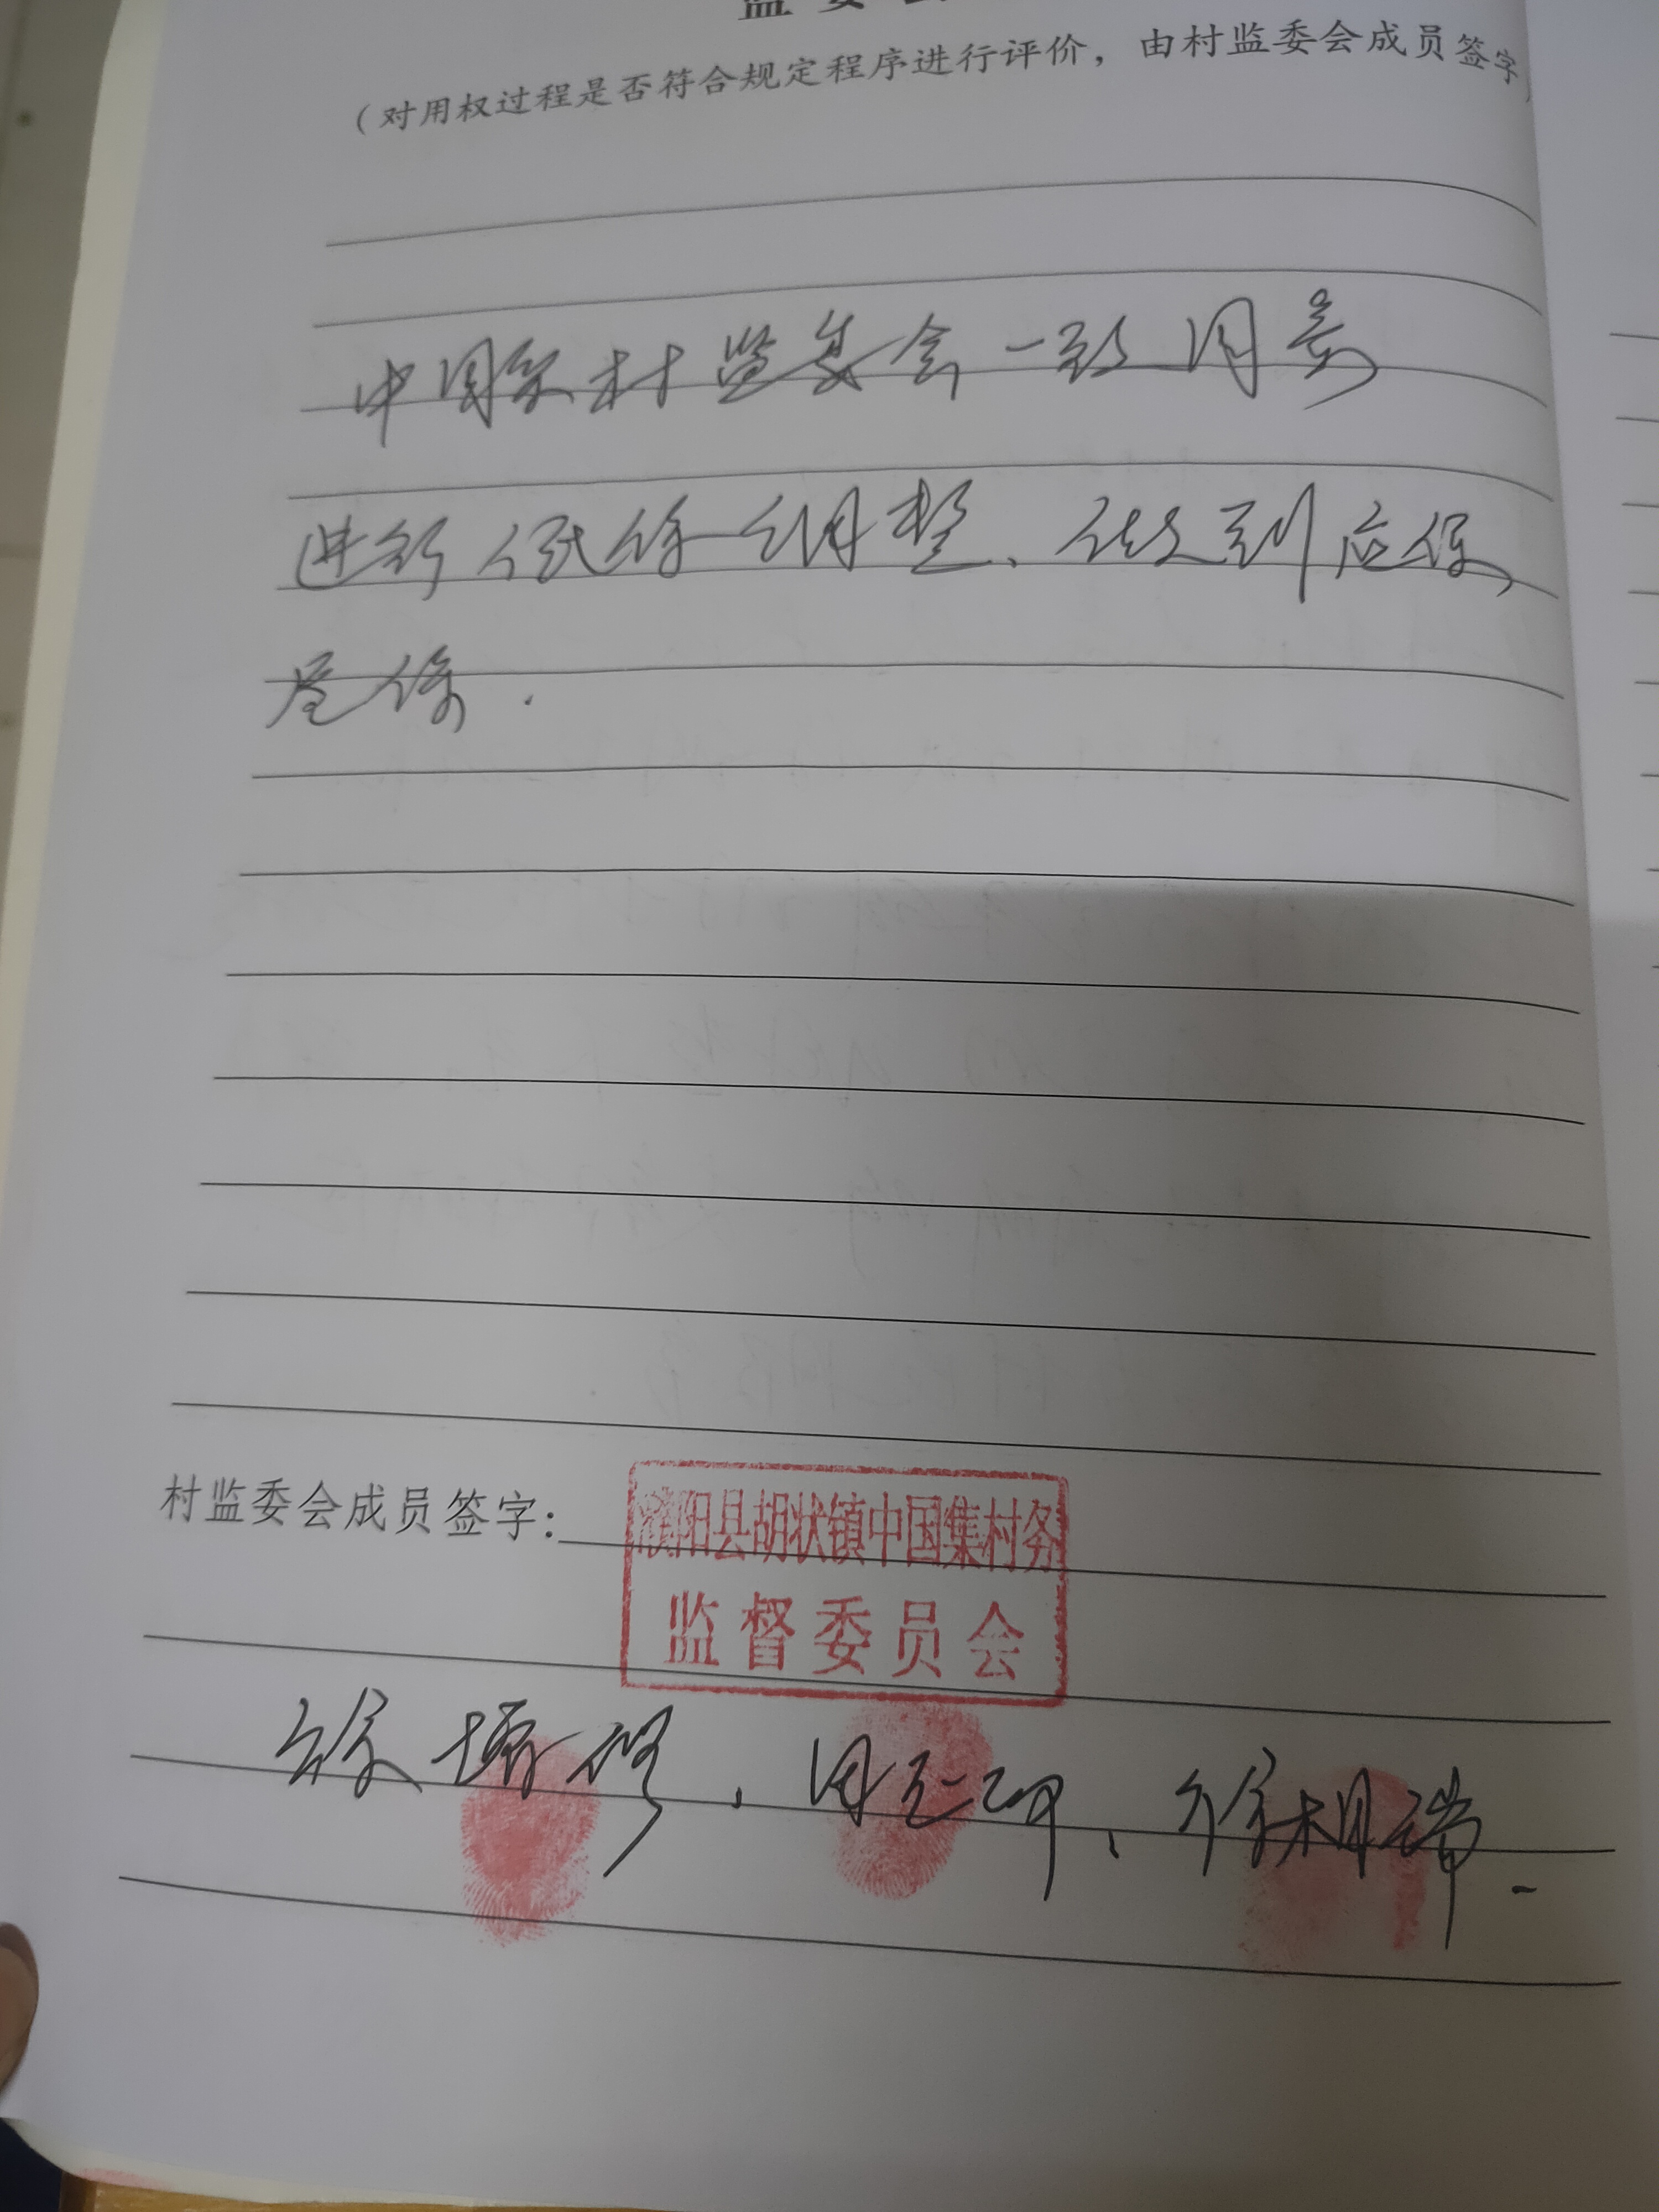 监委会
（对用权过程是否符合规定程序进行评价，由村监委会成员签字）
中国集村监委会一致同意
进行低保调整、做到应保
尽保.
村监委会成员签字：
濮阳县胡状镇中国集村务
监督委员会
徐相瑞